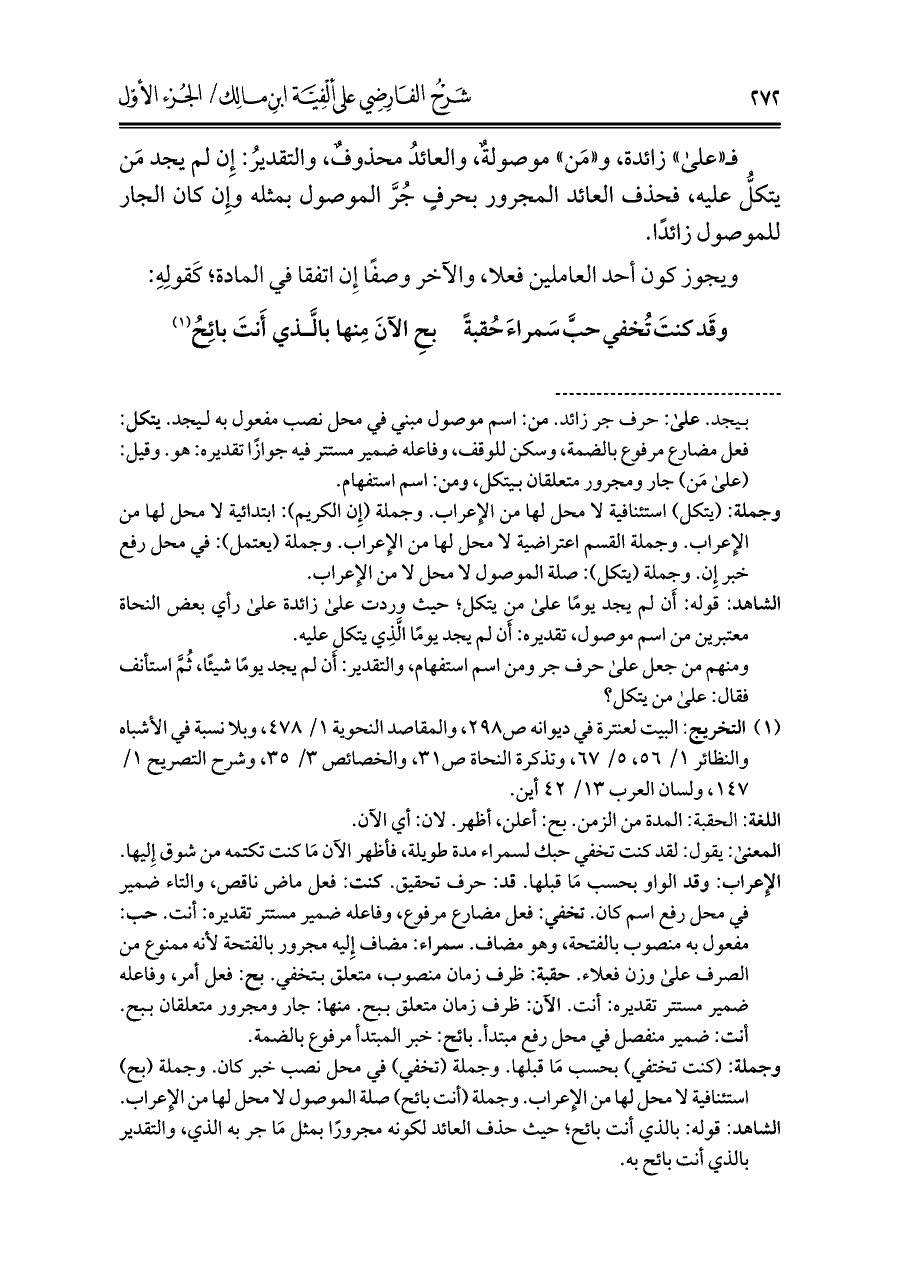 ٢٧٢
شرح الفارضي على ألفية ابن مالك/ الجزء الأول
فـ«علىٰ» زائدة، و«مَن» موصولةٌ، والعائدُ محذوفٌ، والتقديرُ: إِن لم يجد مَن
يتكلُّ عليه، فحذف العائد المجرور بحرفٍ جُرَّ الموصول بمثله وإِن كان الجار
للموصول زائدًا.
ويجوز كون أحد العاملين فعلا، والآخر وصفًا إِن اتفقا في المادة؛ كَقولِهِ:
وقَد كنتَ تُخفي حبَّ سَمراءَ حُقبةً    بحِ الآنَ مِنها بالَّـذي أَنتَ بائِحُ(١)
بـيجد. علىٰ: حرف جر زائد. من: اسم موصول مبني في محل نصب مفعول به لـيجد. يتكل:
فعل مضارع مرفوع بالضمة، وسكن للوقف، وفاعله ضمير مستتر فيه جوازًا تقديره: هو. وقيل:
(علىٰ مَن) جار ومجرور متعلقان بـيتكل، ومن: اسم استفهام.
وجملة: (يتكل) استئنافية لا محل لها من الإِعراب. وجملة (إِن الكريم): ابتدائية لا محل لها من
الإِعراب. وجملة القسم اعتراضية لا محل لها من الإِعراب. وجملة (يعتمل): في محل رفع
خبر إِن. وجملة (يتكل): صلة الموصول لا محل لا من الإِعراب.
الشاهد: قوله: أَن لم يجد يومًا علىٰ من يتكل؛ حيث وردت علىٰ زائدة علىٰ رأي بعض النحاة
معتبرين من اسم موصول، تقديره: أَن لم يجد يومًا الَّذِي يتكل عليه.
ومنهم من جعل علىٰ حرف جر ومن اسم استفهام، والتقدير: أَن لم يجد يومًا شيئًا، ثُمَّ استأنف
فقال: علىٰ من يتكل؟
(١) التخريج: البيت لعنترة في ديوانه ص٢٩٨، والمقاصد النحوية ١/ ٤٧٨، وبلا نسبة في الأشباه
والنظائر ١/ ٥٦، ٥/ ٦٧، وتذكرة النحاة ص٣١، والخصائص ٣/ ٣٥، وشرح التصريح ١/
١٤٧، ولسان العرب ١٣/ ٤٢ أين.
اللغة: الحقبة: المدة من الزمن. بح: أعلن، أظهر. لان: أي الآن.
المعنىٰ: يقول: لقد كنت تخفي حبك لسمراء مدة طويلة، فأظهر الآن مَا كنت تكتمه من شوق إِليها.
الإِعراب: وقد الواو بحسب مَا قبلها. قد: حرف تحقيق. كنت: فعل ماض ناقص، والتاء ضمير
في محل رفع اسم كان. تخفي: فعل مضارع مرفوع، وفاعله ضمير مستتر تقديره: أنت. حب:
مفعول به منصوب بالفتحة، وهو مضاف. سمراء: مضاف إِليه مجرور بالفتحة لأنه ممنوع من
الصرف علىٰ وزن فعلاء. حقبة: ظرف زمان منصوب، متعلق بـتخفي. بح: فعل أمر، وفاعله
ضمير مستتر تقديره: أنت. الآن: ظرف زمان متعلق بـبح. منها: جار ومجرور متعلقان بـبح.
أنت: ضمير منفصل في محل رفع مبتدأ. بائح: خبر المبتدأ مرفوع بالضمة.
وجملة: (كنت تختفي) بحسب مَا قبلها. وجملة (تخفي) في محل نصب خبر كان. وجملة (بح)
استئنافية لا محل لها من الإِعراب. وجملة (أنت بائح) صلة الموصول لا محل لها من الإِعراب.
الشاهد: قوله: بالذي أنت بائح؛ حيث حذف العائد لكونه مجرورًا بمثل مَا جر به الذي، والتقدير
بالذي أنت بائح به.